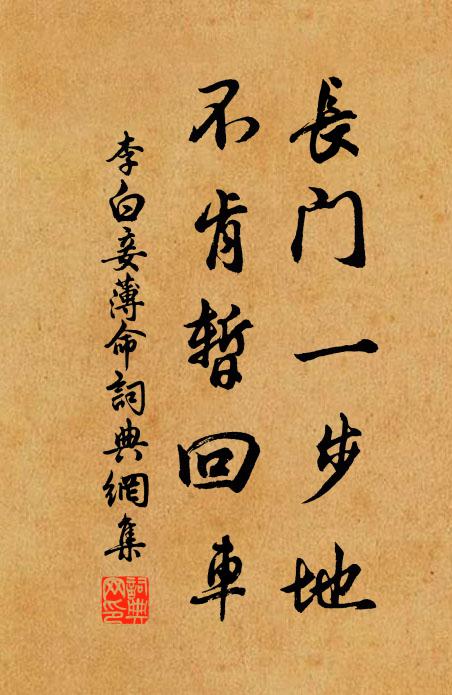 長門一步地
不肯暫回車
李白妾薄命詞典網集
詞典
网印